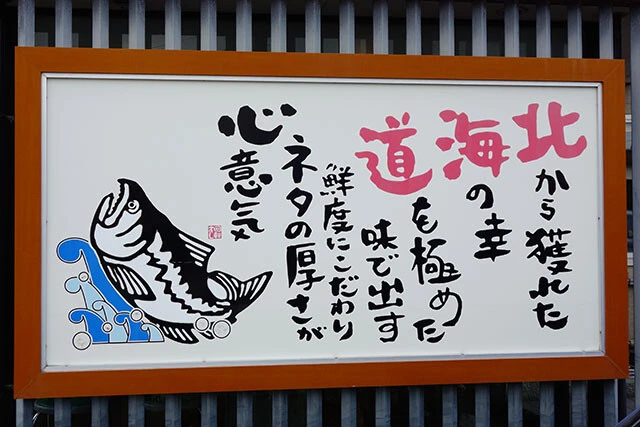 北から獲れた
海の幸
道を極めた
味で出す
鮮度にこだわり
ネタの厚さが
心意気